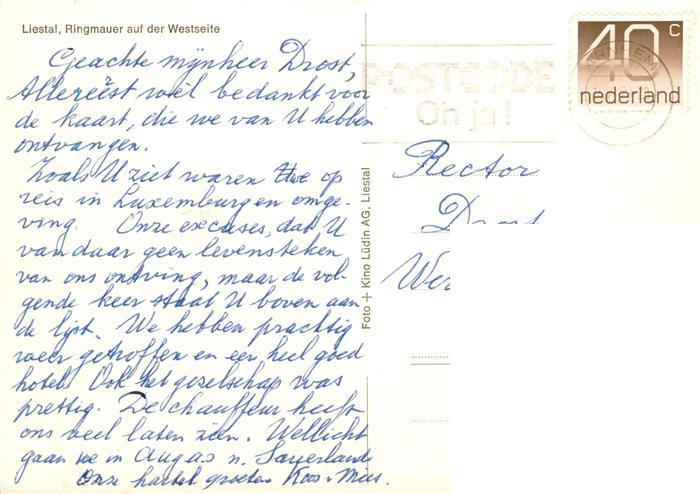 Liestal, Ringmauer auf der Westseite
Geachte mijnheer Drost,
Allereerst wel bedankt voor
de kaart, die we van U hebben
ontvangen.
Zoals U ziet waren we op
reis in Luxemburg en omge-
ving. Onze excuses, dat U
van daar geen levensteken
van ons ontving, maar de vol-
gende keer staat U boven aan
de lijst. We hebben prachtig
weer getroffen en een heel goed
hotel. Ook het gezelschap was
prettig. De chauffeur heeft
ons veel laten zien. Wellicht
gaan we in Aug. n. Sauerland
Onze hartel. groeten Koos + Mies.
Foto + Kino Lüdin AG, Liestal
POSTCODE
Oh ja!
40 c
nederland
Rector